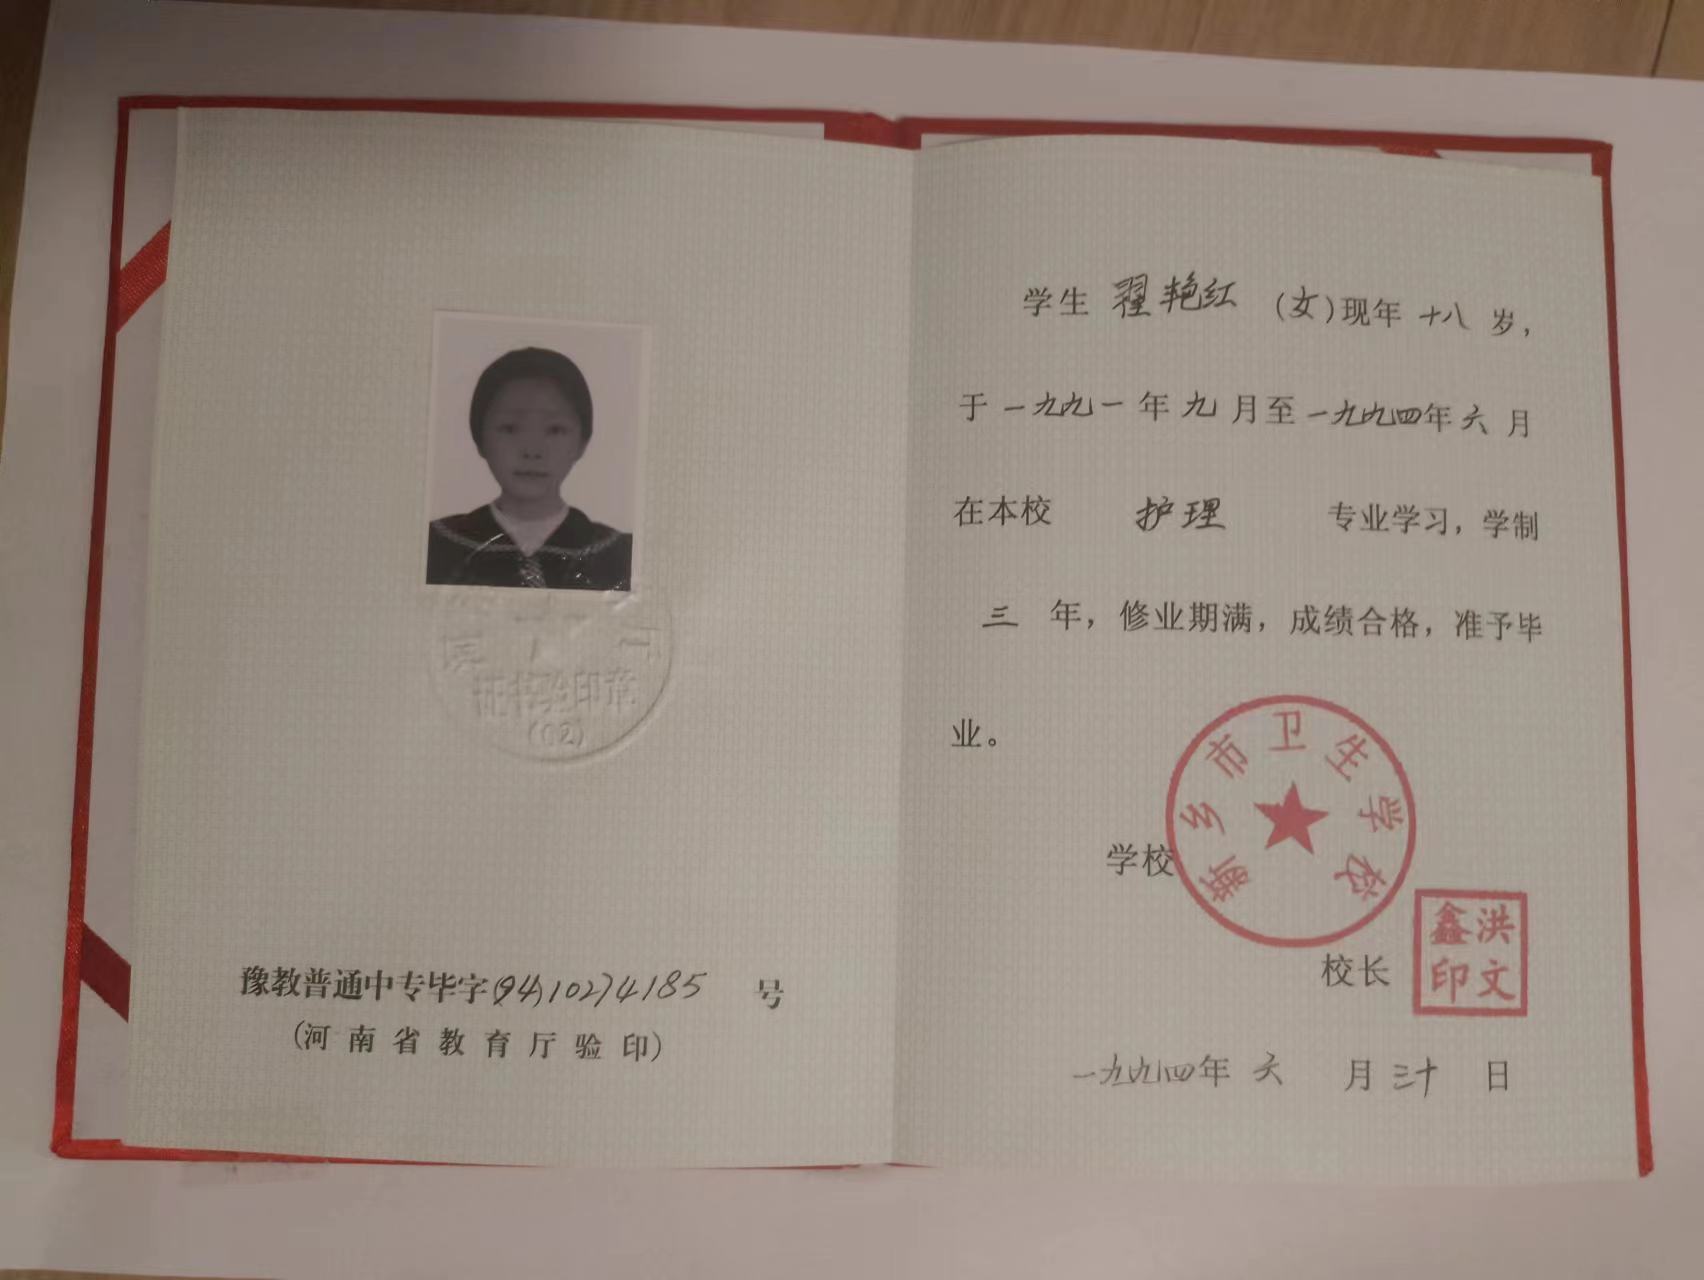 证书验印章
(02)
豫教普通中专毕字(94)10274185号
(河南省教育厅验印)
学生 翟艳红 (女)现年 十八 岁，
于一九九一年九月至一九九四年六月
在本校 护理 专业学习，学制
三年，修业期满，成绩合格，准予毕
业。
新乡市卫生学校
学校
校长
洪文鑫印
一九九四年六月三十日